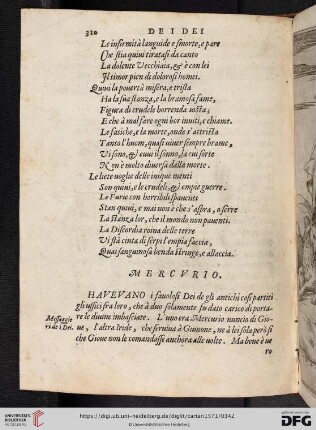 310 DE I DEI
Le infirmità languide e smorte, e pare
Che stia quiui tiratasi da canto
La dolente Vecchiaia, & è con lei
Il timor pien di dolorosi homei.
Quiui la pouertà misera, e trista
Ha la sua stanza, e la bramosa fame,
Figura di crudele horrenda vista,
E che à mal fare ogni hor inuiti, e chiame.
Le fatiche, e la morte, onde s'attrista
Tanto l'huom, quasi viuer sempre brame,
Vi sono, & euui il sonno, la cui sorte
Non è molto diuersa dalla morte.
Le liete voglie delle inique menti
Son quiui, e le crudeli, & empie guerre.
Le Furie con horribili spauenti
Stan quiui, e mai non è che s'apra, o serre
La stanza lor, che il mondo non pauenti.
La Discordia roina delle terre
Vi stà cinta di serpi l'empia faccia,
Quai sanguinosa benda stringe, e allaccia.
MERCVRIO.
HAVEVANO i fauolosi Dei de gli antichi cosi partiti
gli vffici fra loro, che à duo solamente fu dato carico di portare
Messaggieri de i Dei.
le diuine imbasciate. L'uno era Mercurio nuncio di Gioue,
l'altra Iride, che seruiua à Giunone, ne à lei sola però sì
che Gioue non le comandasse anchora alle volte. Ma bene è ue
ro
UNIVERSITÄTS-
BIBLIOTHEK
HEIDELBERG
https://digi.ub.uni-heidelberg.de/diglit/cartari1571/0342
© Universitätsbibliothek Heidelberg
gefördert durch die
DFG